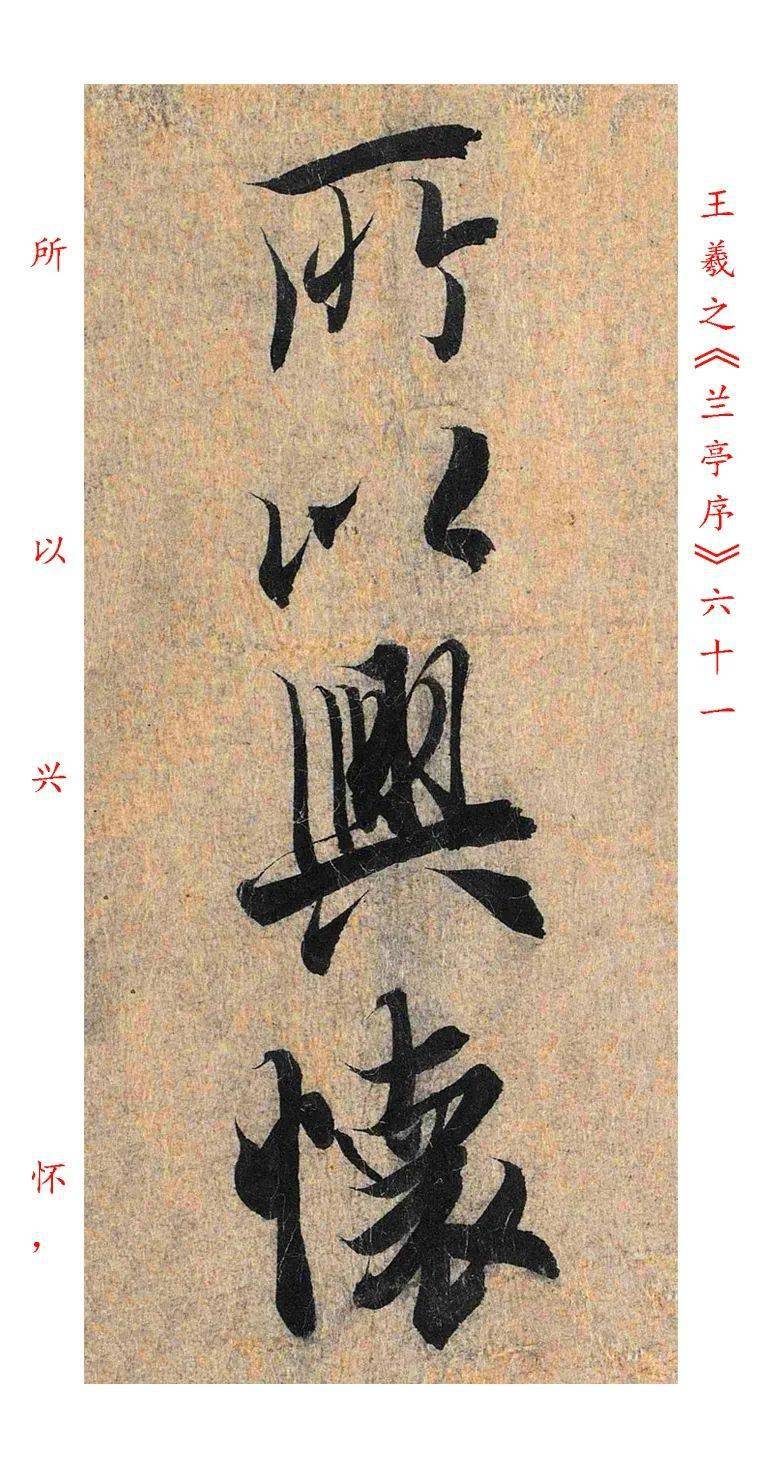 王羲之《兰亭序》六十一
所以興懷
所以兴怀，